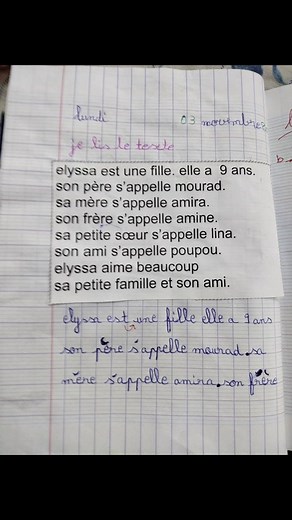 lundi 03 novembre
je lis le texte
elyssa est une fille. elle a 9 ans.
son père s'appelle mourad.
sa mère s'appelle amira.
son frère s'appelle amine.
sa petite sœur s'appelle lina.
son ami s'appelle poupou.
elyssa aime beaucoup
sa petite famille et son ami.
elyssa est une fille elle a 9 ans
son père s'appelle mourad. sa
mère s'appelle amira. son frère